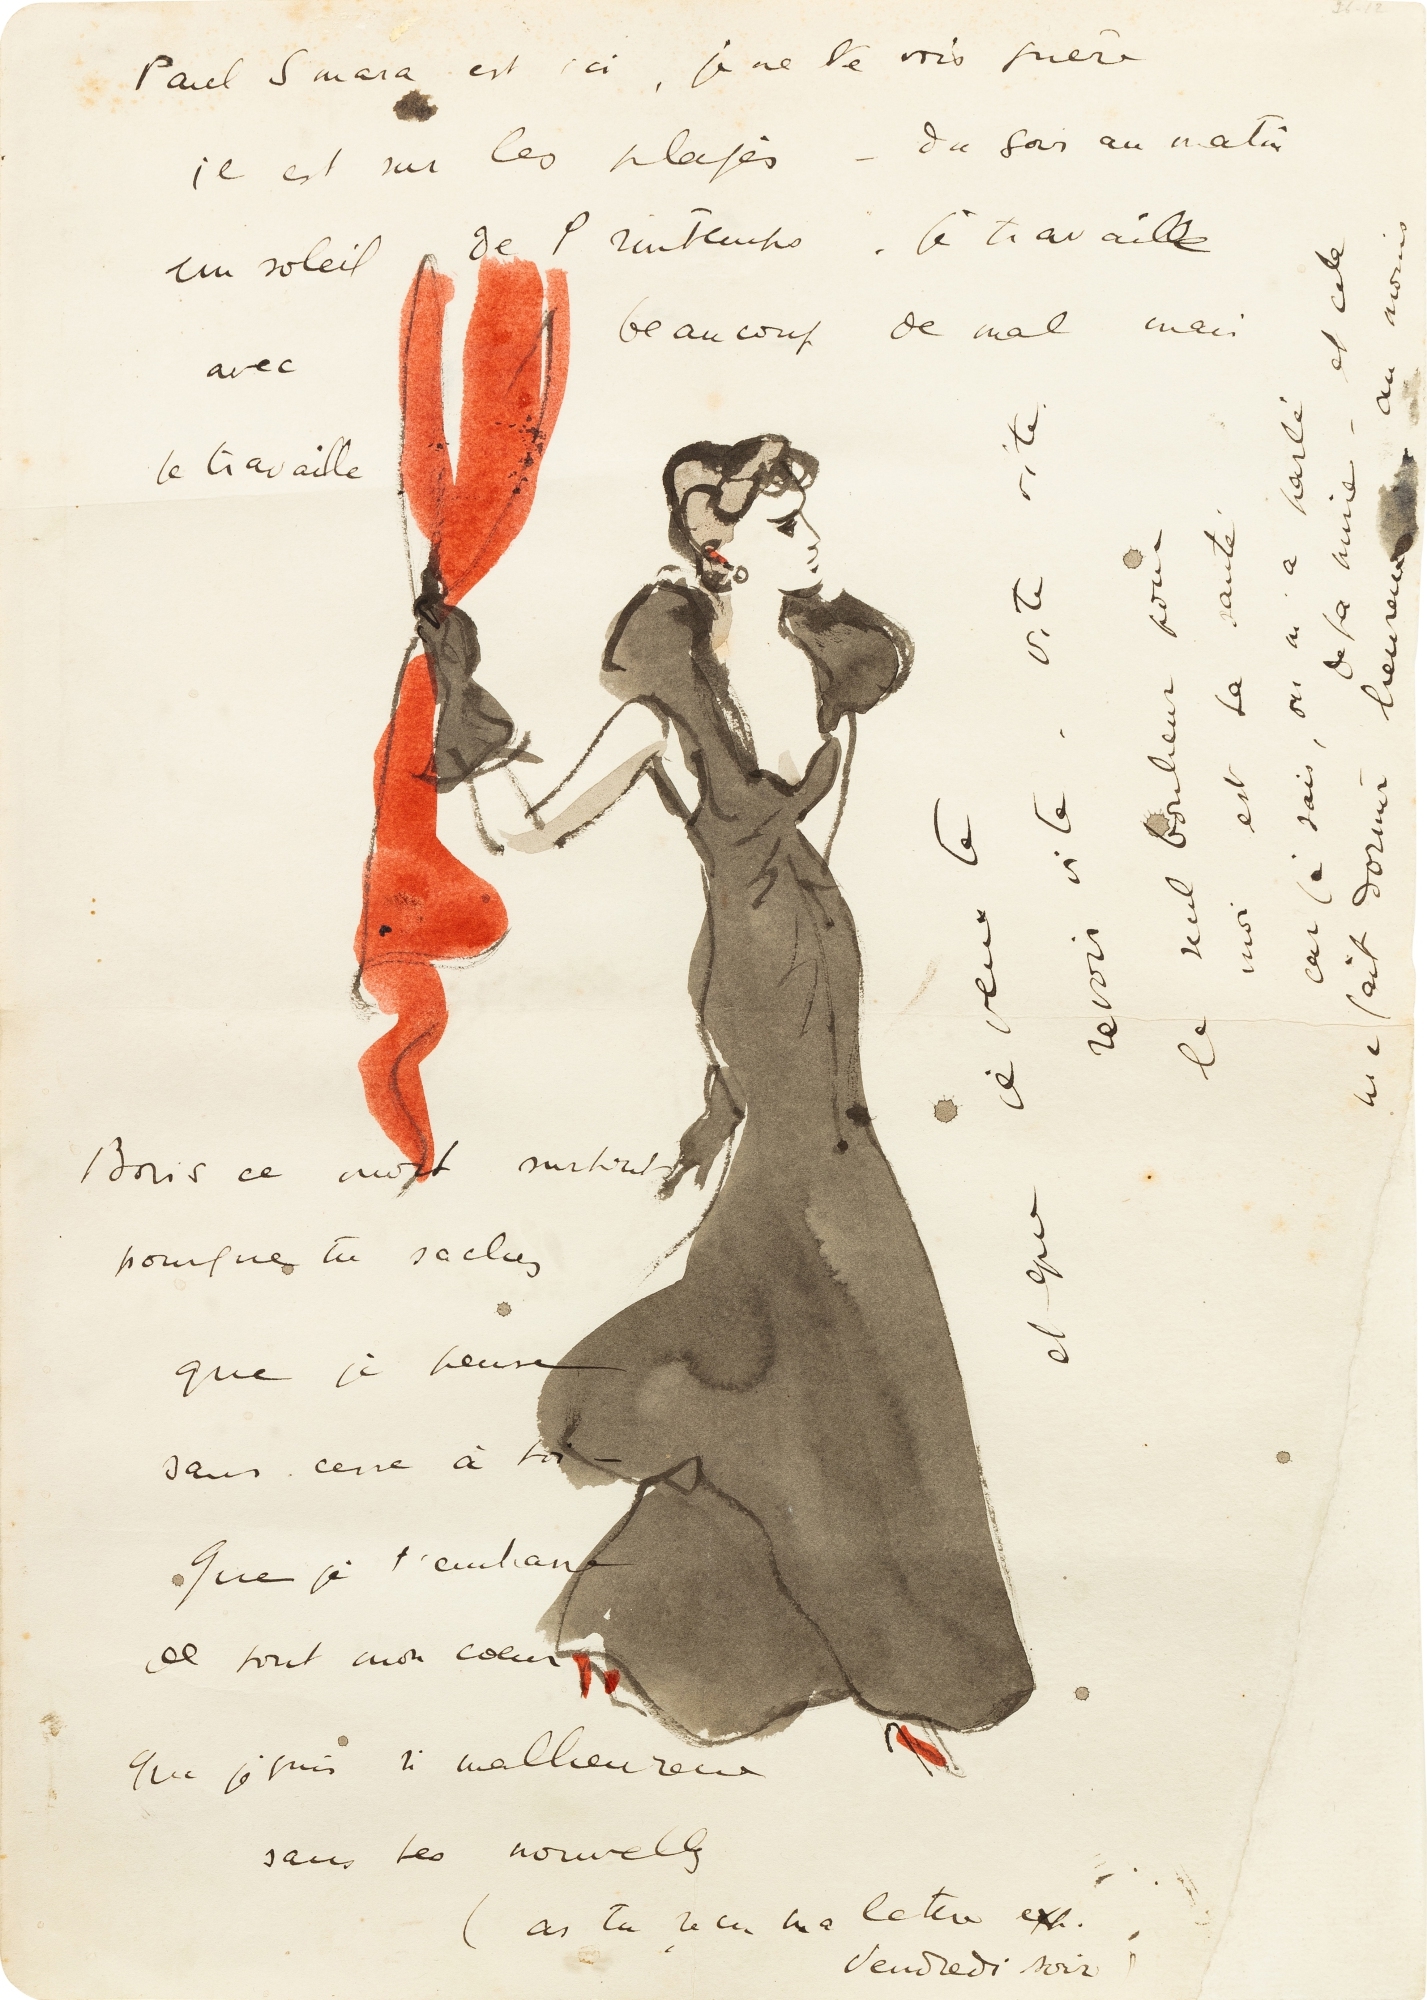 Paul Smara est ici, je ne le vois guère
il est sur les plages - du soir au matin
un soleil de Printemps. Je travaille
avec beaucoup de mal mais
je travaille
Boris ce mot surtout
pour que tu saches
que je pense
sans cesse à toi -
Que je t'embrasse
de tout mon coeur
Que je suis si malheureux
sans tes nouvelles
(as tu reçu ma lettre exp.
Vendredi soir)
et que je veux te
revoir vite. vite vite.
le seul bonheur pour
moi est ta santé
car je sais, on m'a parlé
de ta mine - et cela
me fait dormir heureux au moins